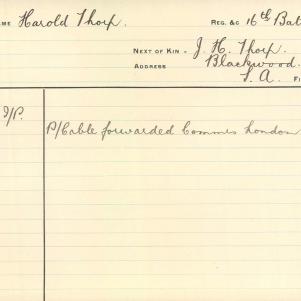 AME Harold Thorp. REG. &C 16th Bat
NEXT OF KIN - J. H. Thorp.
ADDRESS Blackwood.
S. A. F
I/P. P/Cable forwarded Commis London